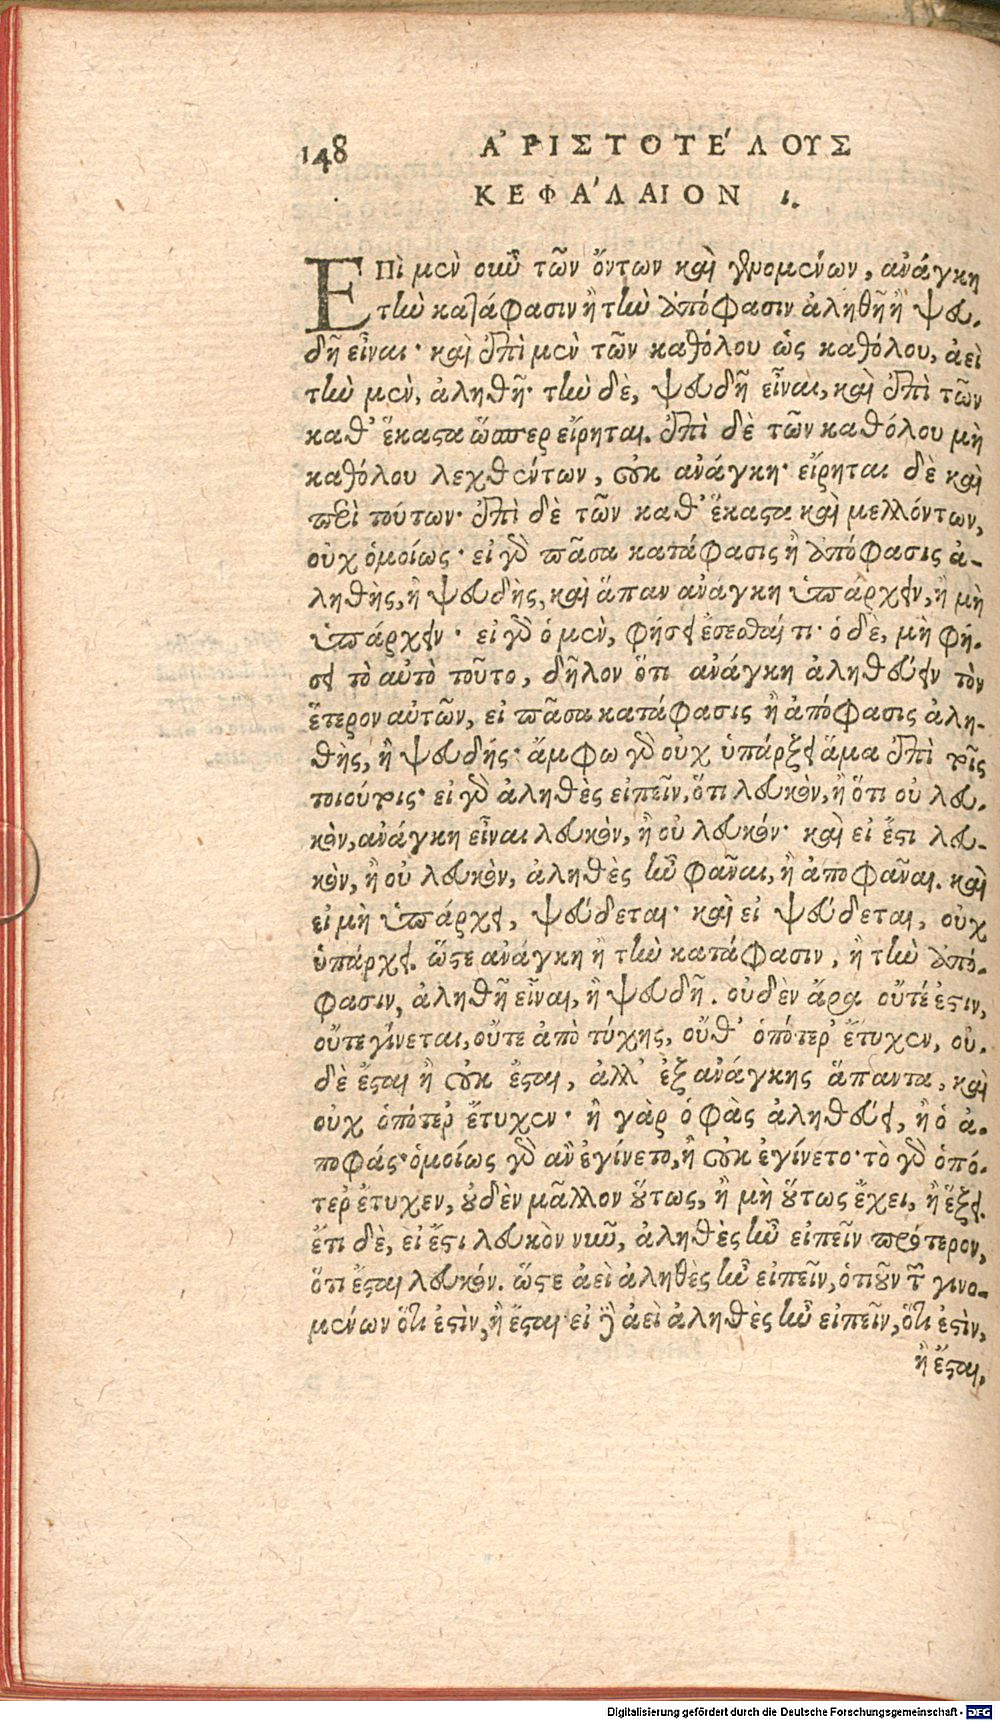 148 ἈΡΙΣΤΟΤΈΛΟΥΣ
ΚΕΦΆΛΑΙΟΝ ι.
ΕΠὶ μὲν οὖν τῶν ὄντων καὶ γενομένων, ἀνάγκη
τὴν κατάφασιν ἢ τὴν ἀπόφασιν ἀληθῆ ἢ ψευ-
δῆ εἶναι· καὶ ἐπὶ μὲν τῶν καθόλου ὡς καθόλου, ἀεὶ
τὴν μὲν, ἀληθῆ· τὴν δὲ, ψευδῆ εἶναι, καὶ ἐπὶ τῶν
καθ’ ἕκαστα ὥσπερ εἴρηται. ἐπὶ δὲ τῶν καθόλου μὴ
καθόλου λεχθέντων, οὐκ ἀνάγκη· εἴρηται δὲ καὶ
περὶ τούτων· ἐπὶ δὲ τῶν καθ’ ἕκαστα καὶ μελλόντων,
οὐχ ὁμοίως· εἰ γὰρ πᾶσα κατάφασις ἢ ἀπόφασις ἀ-
ληθὴς, ἢ ψευδὴς, καὶ ἅπαν ἀνάγκη ὑπάρχειν, ἢ μὴ
ὑπάρχειν· εἰ γὰρ ὁ μὲν, φήσει ἔσεσθαί τι· ὁ δὲ, μὴ φή-
σει τὸ αὐτὸ τοῦτο, δῆλον ὅτι ἀνάγκη ἀληθεύειν τὸν
ἕτερον αὐτῶν, εἰ πᾶσα κατάφασις ἢ ἀπόφασις ἀλη-
θὴς, ἢ ψευδής· ἄμφω γὰρ οὐχ ὑπάρξει ἅμα ἐπὶ τοῖς
τοιούτοις· εἰ γὰρ ἀληθὲς εἰπεῖν, ὅτι λευκὸν, ἢ ὅτι οὐ λευ-
κὸν, ἀνάγκη εἶναι λευκὸν, ἢ οὐ λευκόν· καὶ εἰ ἔστι λευ-
κὸν, ἢ οὐ λευκὸν, ἀληθὲς ἦν φᾶναι, ἢ ἀποφᾶναι. καὶ
εἰ μὴ ὑπάρχει, ψεύδεται· καὶ εἰ ψεύδεται, οὐχ
ὑπάρχει. ὥστε ἀνάγκη ἢ τὴν κατάφασιν, ἢ τὴν ἀπό-
φασιν, ἀληθῆ εἶναι, ἢ ψευδῆ. οὐδὲν ἄρα οὔτέ ἐστιν,
οὔτε γίνεται, οὔτε ἀπὸ τύχης, οὔθ’ ὁπότερ’ ἔτυχεν, οὐ-
δὲ ἔσται ἢ οὐκ ἔσται, ἀλλ’ ἐξ ἀνάγκης ἅπαντα, καὶ
οὐχ ὁπότερ’ ἔτυχεν· ἢ γὰρ ὁ φὰς ἀληθεύει, ἢ ὁ ἀ-
ποφάς· ὁμοίως γὰρ ἂν ἐγίνετο, ἢ οὐκ ἐγίνετο· τὸ γὰρ ὁπό-
τερ’ ἔτυχεν, οὐδὲν μᾶλλον οὕτως, ἢ μὴ οὕτως ἔχει, ἢ ἕξει.
ἔτι δὲ, εἰ ἔστι λευκὸν νῦν, ἀληθὲς ἦν εἰπεῖν πρότερον,
ὅτι ἔσται λευκόν. ὥστε ἀεὶ ἀληθὲς ἦν εἰπεῖν, ὁτιοῦν τῶν γινο-
μένων ὅτι ἐστὶν, ἢ ἔσται· εἰ δὲ ἀεὶ ἀληθὲς ἦν εἰπεῖν, ὅτι ἐστὶν,
ἢ ἔσται,
Digitalisierung gefördert durch die Deutsche Forschungsgemeinschaft - DFG